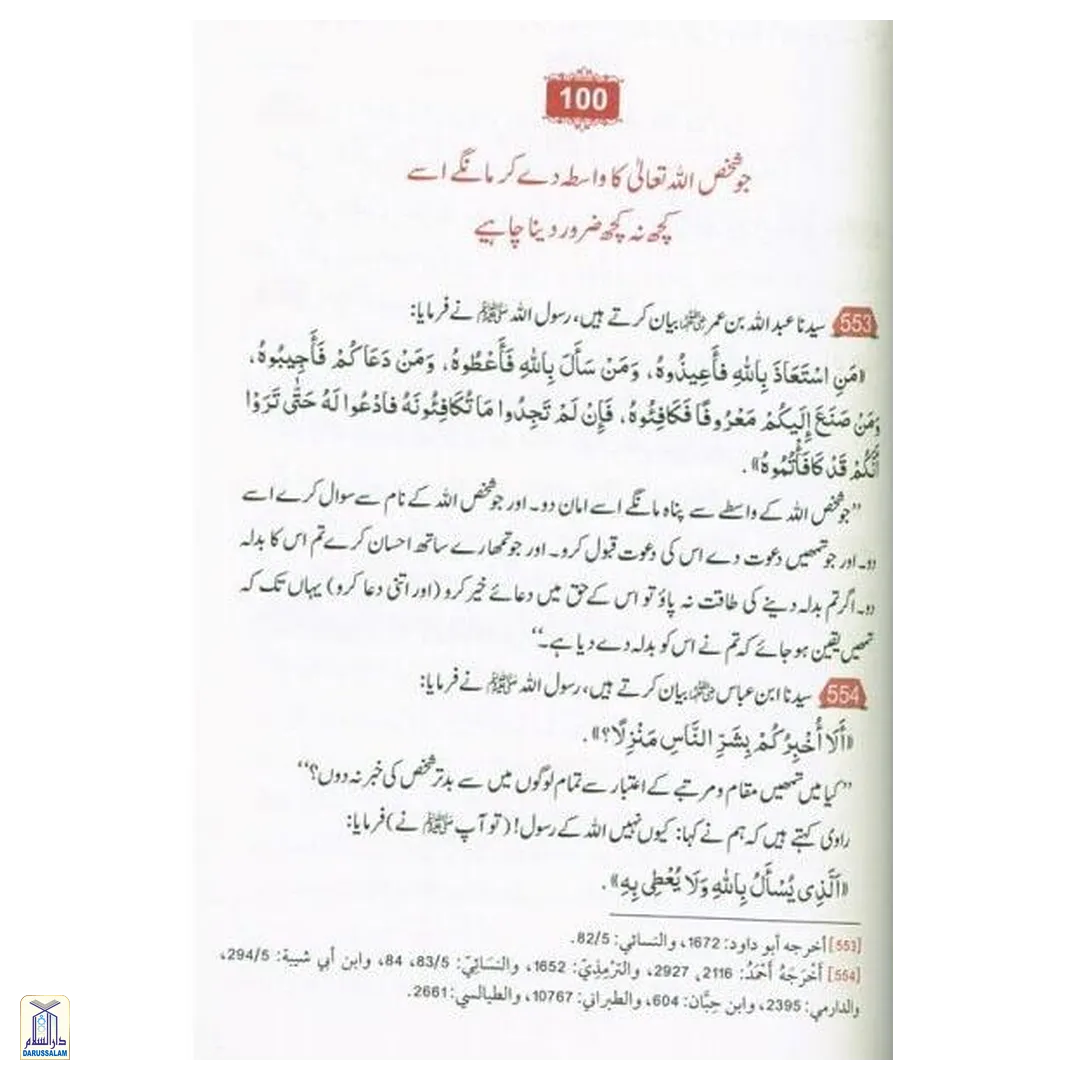 100
جو شخص اللہ تعالیٰ کا واسطہ دے کر مانگے اسے
کچھ نہ کچھ ضرور دینا چاہیے
553 سیدنا عبد اللہ بن عمر رضی اللہ عنہما بیان کرتے ہیں، رسول اللہ ﷺ نے فرمایا:
«مَنِ اسْتَعَاذَ بِاللهِ فَأَعِيذُوهُ، وَمَنْ سَأَلَ بِاللهِ فَأَعْطُوهُ، وَمَنْ دَعَاكُمْ فَأَجِيبُوهُ،
وَمَنْ صَنَعَ إِلَيْكُمْ مَعْرُوفًا فَكَافِئُوهُ، فَإِنْ لَمْ تَجِدُوا مَا تُكَافِئُونَهُ فَادْعُوا لَهُ حَتَّى تَرَوْا
أَنَّكُمْ قَدْ كَافَأْتُمُوهُ».
”جو شخص اللہ کے واسطے سے پناہ مانگے اسے امان دو۔ اور جو شخص اللہ کے نام سے سوال کرے اسے
دو۔ اور جو تمھیں دعوت دے اس کی دعوت قبول کرو۔ اور جو تمھارے ساتھ احسان کرے تم اس کا بدلہ
دو۔ اگر تم بدلہ دینے کی طاقت نہ پاؤ تو اس کے حق میں دعائے خیر کرو (اور اتنی دعا کرو) یہاں تک کہ
تمھیں یقین ہو جائے کہ تم نے اس کو بدلہ دے دیا ہے۔“
554 سیدنا ابن عباس رضی اللہ عنہما بیان کرتے ہیں، رسول اللہ ﷺ نے فرمایا:
«أَلَا أُخْبِرُكُمْ بِشَرِّ النَّاسِ مَنْزِلًا؟».
”کیا میں تمھیں مقام و مرتبے کے اعتبار سے تمام لوگوں میں سے بدتر شخص کی خبر نہ دوں؟“
راوی کہتے ہیں کہ ہم نے کہا: کیوں نہیں اللہ کے رسول! (تو آپ ﷺ نے) فرمایا:
«اَلَّذِي يُسْأَلُ بِاللهِ وَلَا يُعْطِي بِهِ».
[553] أخرجه أبو داود: 1672، والنسائي: 82/5.
[554] أَخْرَجَهُ أَحْمَدُ: 2116، 2927، والتِّرْمِذِيّ: 1652، والنسَائِيّ: 83/5، 84، وابن أبي شيبة: 294/5،
والدارمي: 2395، وابن حِبَّان: 604، والطبراني: 10767، والطيالسي: 2661.
دارالسلام
DARUSSALAM